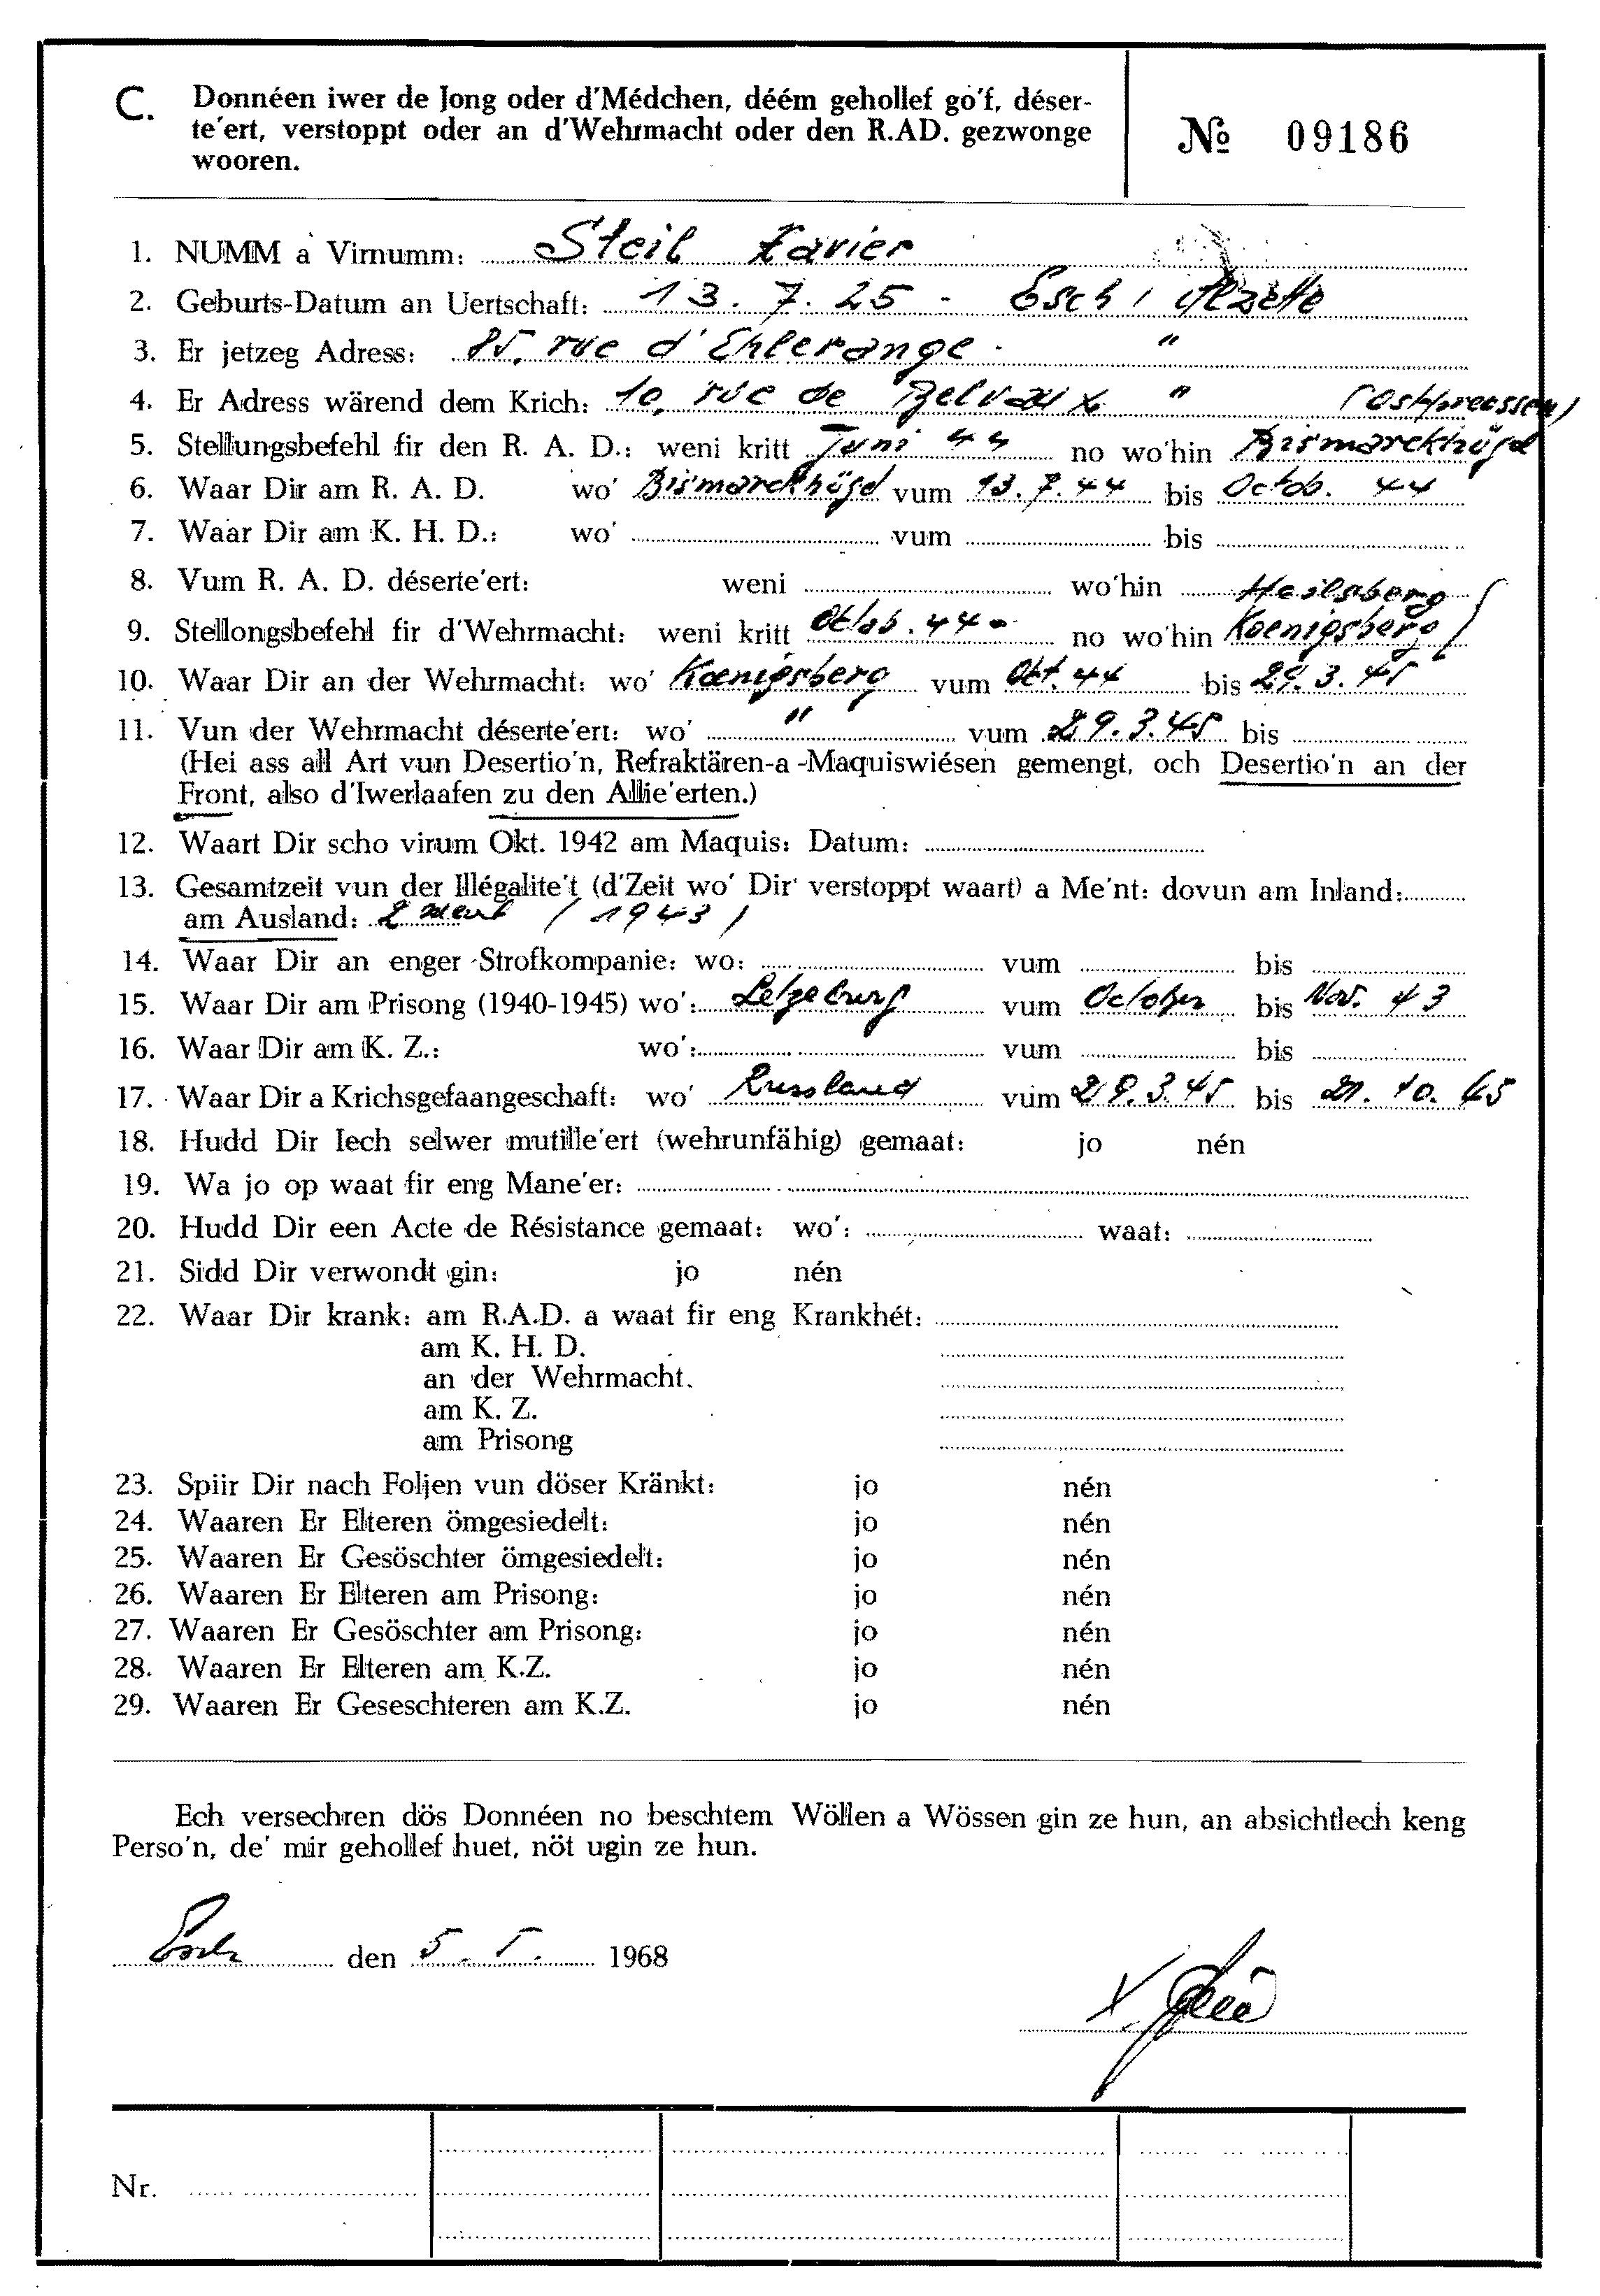 C. Donnéen iwer de Jong oder d'Médchen, déém gehollef go'f, déser-
te'ert, verstoppt oder an d'Wehrmacht oder den R.AD. gezwonge
wooren.
№ 09186
1. NUMM a Virnumm: Steil Xavier
2. Geburts-Datum an Uertschaft: 13. 7. 25 - Esch / Alzette
3. Er jetzeg Adress: 85, rue d'Ehlerange - "
4. Er Adress wärend dem Krich: 10, rue de Belvaux " (Ostpreussen)
5. Stellungsbefehl fir den R. A. D.: weni kritt Juni 44 no wo'hin Bismarckhügel
6. Waar Dir am R. A. D. wo' Bismarckhügel vum 13. 7. 44 bis Octob. 44
7. Waar Dir am K. H. D.: wo' vum bis
8. Vum R. A. D. déserte'ert: weni wo'hin Heilsberg
9. Stellongsbefehl fir d'Wehrmacht: weni kritt Oktob. 44 no wo'hin Koenigsberg
10. Waar Dir an der Wehrmacht: wo' Koenigsberg vum Okt. 44 bis 29. 3. 45
11. Vun der Wehrmacht déserte'ert: wo' " vum 29. 3. 45 bis
(Hei ass all Art vun Desertio'n, Refraktären-a -Maquiswiésen gemengt, och Desertio'n an der
Front, also d'Iwerlaafen zu den Allie'erten.)
12. Waart Dir scho virum Okt. 1942 am Maquis: Datum:
13. Gesamtzeit vun der Illégalite't (d'Zeit wo' Dir verstoppt waart) a Me'nt: dovun am Inland:
am Ausland: 2 Ment (1943)
14. Waar Dir an enger Strofkompanie: wo: vum bis
15. Waar Dir am Prisong (1940-1945) wo': Letzeburg vum October bis Nov. 43
16. Waar Dir am K. Z.: wo': vum bis
17. Waar Dir a Krichsgefaangeschaft: wo' Russland vum 29. 3. 45 bis 21. 10. 45
18. Hudd Dir Iech selwer mutille'ert (wehrunfähig) gemaat: jo nén
19. Wa jo op waat fir eng Mane'er:
20. Hudd Dir een Acte de Résistance gemaat: wo': waat:
21. Sidd Dir verwondt gin: jo nén
22. Waar Dir krank: am R.A.D. a waat fir eng Krankhét:
am K. H. D.
an der Wehrmacht.
am K. Z.
am Prisong
23. Spiir Dir nach Foljen vun döser Kränkt: jo nén
24. Waaren Er Elteren ömgesiedelt: jo nén
25. Waaren Er Gesöschter ömgesiedelt: jo nén
26. Waaren Er Elteren am Prisong: jo nén
27. Waaren Er Gesöschter am Prisong: jo nén
28. Waaren Er Elteren am K.Z. jo nén
29. Waaren Er Geseschteren am K.Z. jo nén
Ech versechren dös Donnéen no beschtem Wöllen a Wössen gin ze hun, an absichtlech keng
Perso'n, de' mir gehollef huet, nöt ugin ze hun.
Esch den 5. 5. 1968
Nr.